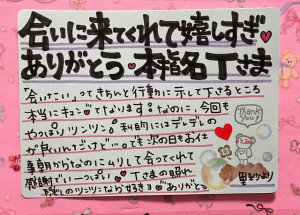 会いに来てくれて嬉しすぎ♥
ありがとう♥本指名Tさま
「会いたい」ってきちんと行動に示して下さるところ
本当にキュン♥てなります！なのに、今回も
やっぱりツンツン！にはデレデレ
が良いんだけど…♥でも次の日もお仕
事朝からなのにムリして会ってくれて
感謝でいーっぱい♥Tさまの照れ
隠しのツンツンなら好き♥ありがと♥
Thank You!
より